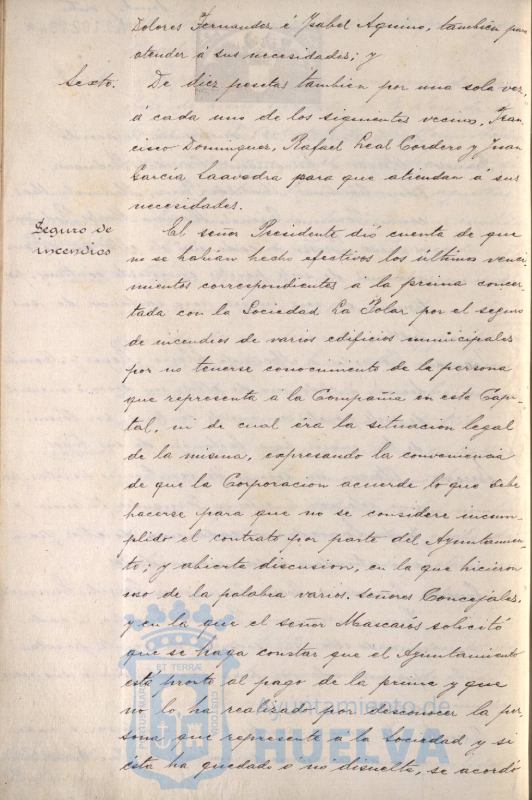 Dolores Fernandez é Ysabel Aquino, tambien para
atender á sus necesidades; y
Sexto. De diez pesetas tambien por una sola vez,
á cada uno de los siguientes vecinos, Fran-
cisco Dominguez, Rafael Leal Cordero y Juan
Garcia Saavedra para que atiendan á sus
necesidades.
Seguro de
incendios
El señor Presidente dió cuenta de que
no se habian hecho efectivos los últimos venci-
mientos correspondientes á la prima concer-
tada con la Sociedad La Polar por el seguro
de incendios de varios edificios municipales
por no tenerse conocimiento de la persona
que representa á la Compañia en esta Capi-
tal, ni de cual éra la situacion legal
de la misma, expresando la conveniencia
de que la Corporacion acuerde lo que debe
hacerse para que no se considere incum-
plido el contrato por parte del Ayuntamien-
to; y abierta discusion, en la que hicieron
uso de la palabra varios señores Concejales,
y en la que el señor Mascarós solicitó
que se haga constar que el Ayuntamiento
está pronto al pago de la prima y que
no lo ha realizado por desconocer la per-
sona que represente á la Sociedad y si
ésta ha quedado o no disuelta, se acordó
PORTUS MARIS ET TERRÆ CUSTODIA
Ayuntamiento de
HUELVA